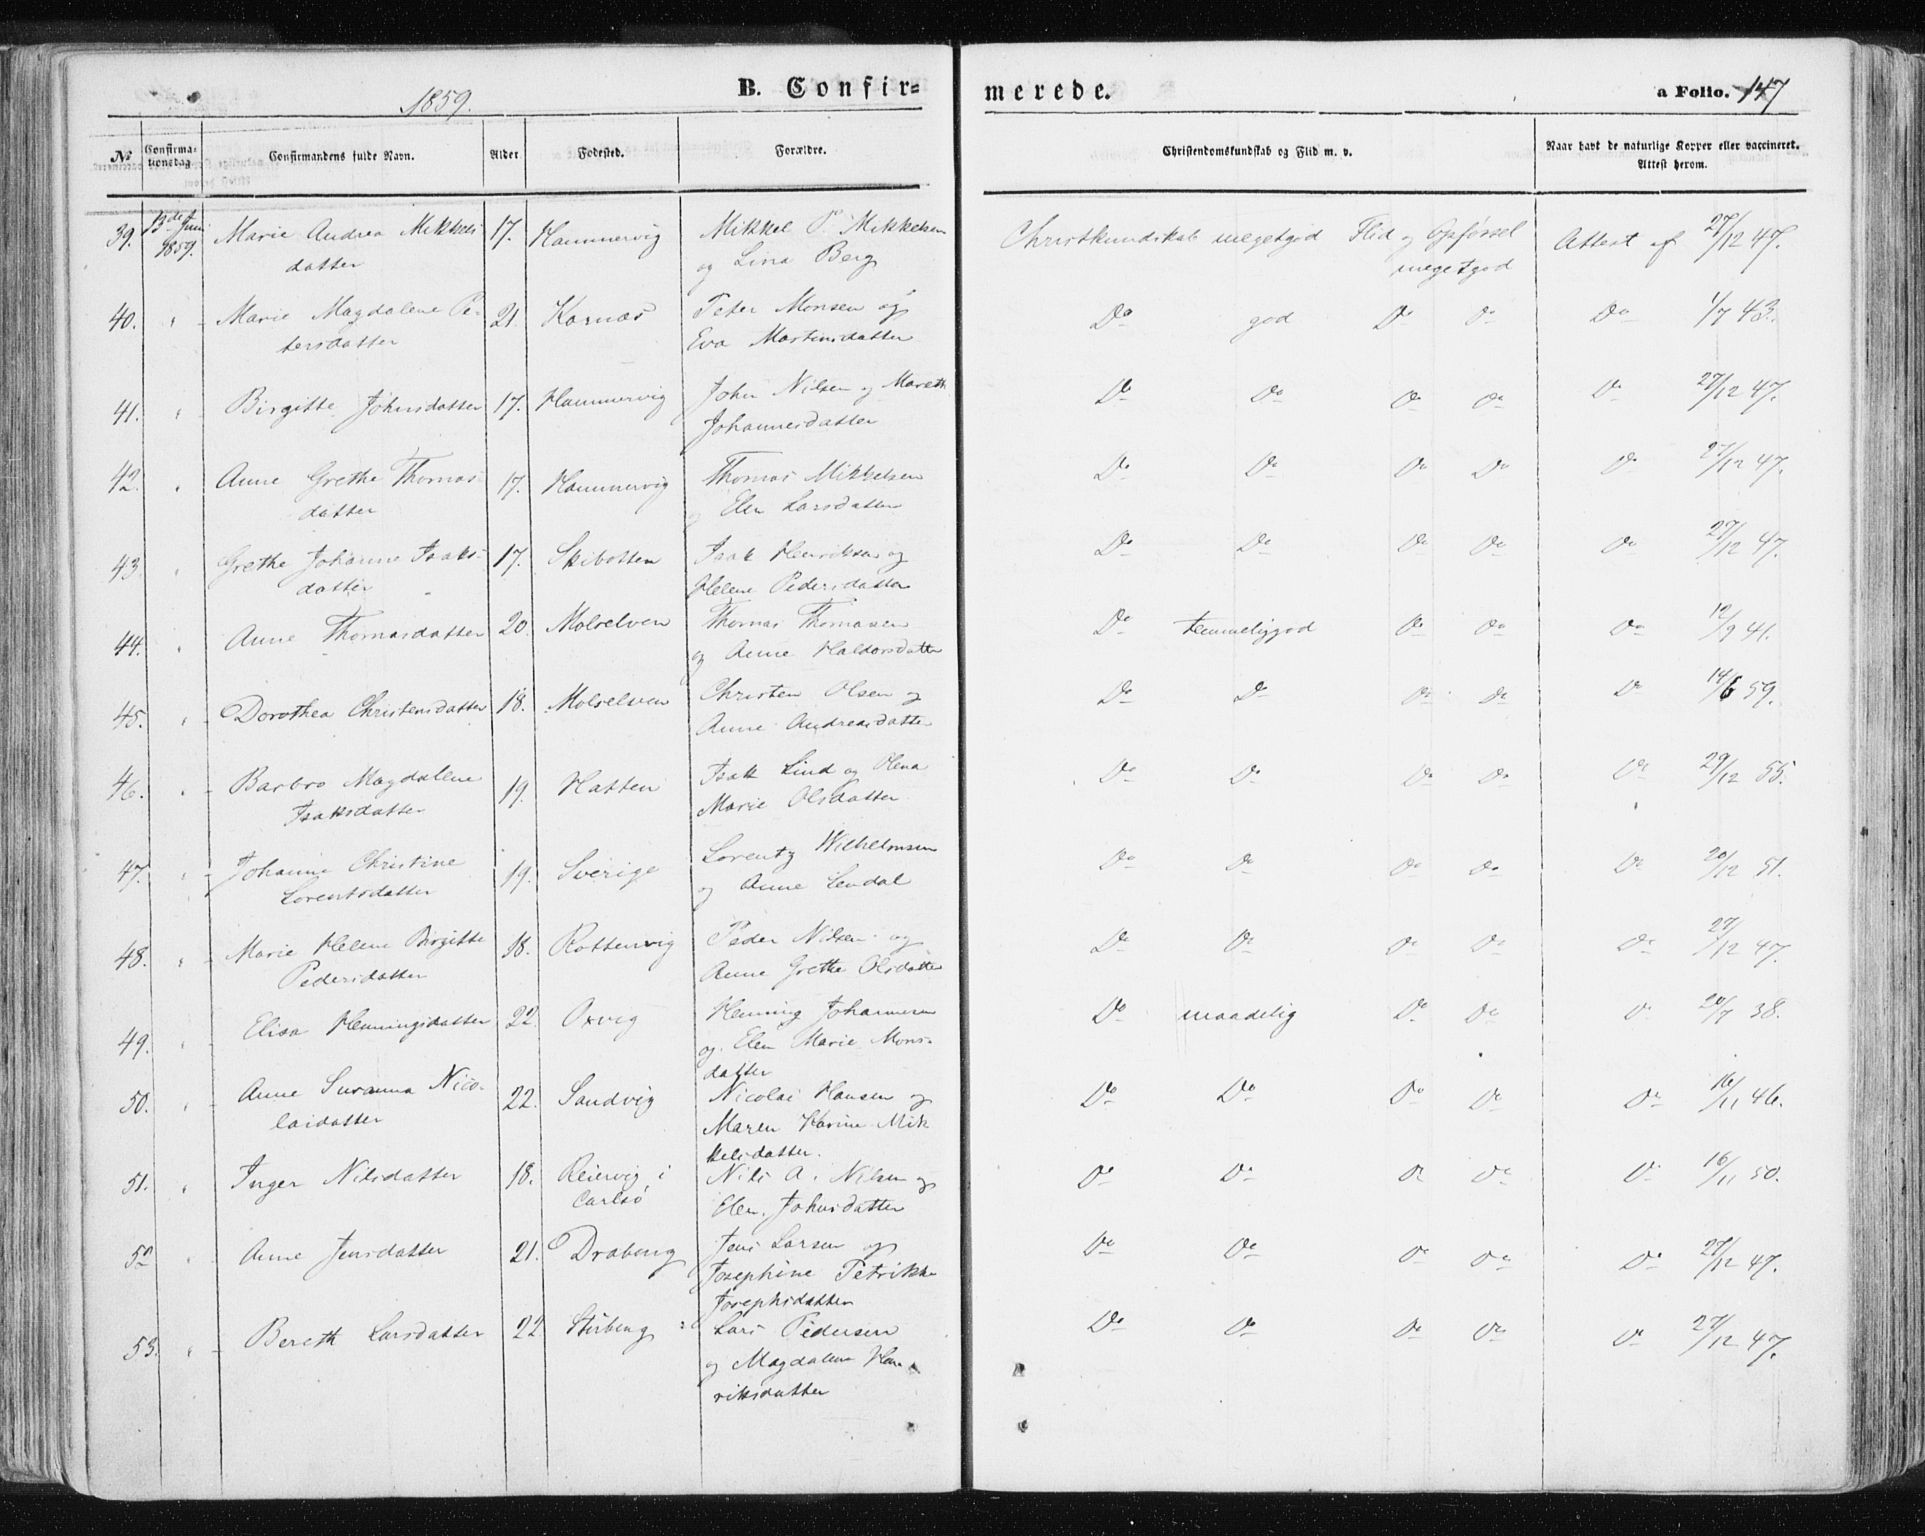 1859.
B. Confir=
merede.
a Folio. 147
No
Confirma-
tionsdag.
Confirmandens fulde Navn.
Alder
Fødested.
Forældre.
Christendomskundskab og Flid m. v.
Naar havt de naturlige Kopper eller vaccineret.
Attest herom.
39. 13de Juni Marie Andrea Mikkels 17. Hammervig Mikkel P. Mikkelsen Christkundskab megetgod Flid og Opførsel Attest af 27/12 47.
1859. datter og Lina Berg megetgod
40. " Marie Magdalene Pe- 21. Karnæs Peter Monsen og Do god Do Do Do 1/7 43.
tersdatter Eva Martinsdatter
41. " Birgitte Johnsdatter 17. Hammervig John Nilsen og Mareth Do Do Do Do Do 27/12 47.
Johannesdatter
42. " Anne Grethe Thomas 17. Hammervig Thomas Mikkelsen Do Do Do Do Do 27/12 47.
datter og Elen Larsdatter
43. " Grethe Johanne Isaks- 17. Skibotten Isak Henriksen og Do Do Do Do Do 27/12 47.
datter Helene Pedersdatter
44. " Anne Thomasdatter 20. Molselven Thomas Thomasen Do temmeliggod Do Do Do 12/9 41.
og Anne Haldorsdatter
45. " Dorothea Christensdatter 18. Molselven Christen Olsen og Do Do Do Do Do 14/6 59.
Anne Andreasdatter
46. " Barbro Magdalene 19. Hatten Isak Lind og Olena Do Do Do Do Do 29/12 55.
Isaksdatter Marie Olsdatter
47. " Johanne Christine 19. Sverige Lorentz Wilhelmsen Do Do Do Do Do 20/12 51.
Lorentsdatter og Anne Lendal
48. " Marie Helene Birgitte 18. Rottenvig Peder Nilsen og Do Do Do Do Do 27/12 47.
Pedersdatter Anne Grethe Olsdatter
49. " Elisa Henningsdatter 22. Oxvig Henning Johannesen Do maadelig Do Do Do 20/7 38.
og Elen Marie Mons-
datter
50. " Anne Susanna Nico- 22. Sandvig Nicolai Hansen og Do Do Do Do Do 16/11 46.
laidatter Maren Karine Mik
kelsdatter.
51. " Inger Nilsdatter 18. Reiervig i Nils A. Nilsen og Do Do Do Do Do 16/11 50.
Carlsø Elen Johnsdatter
52 " Anne Jensdatter 21. Drabeng Jens Larsen og Do Do Do Do Do 27/12 47.
Josephine Petrikke
Josephsdatter
53. " Bereth Larsdatter 22 Lars Pedersen Do Do Do Do Do 27/12 47.
og Magdalena Hen-
riksdatter